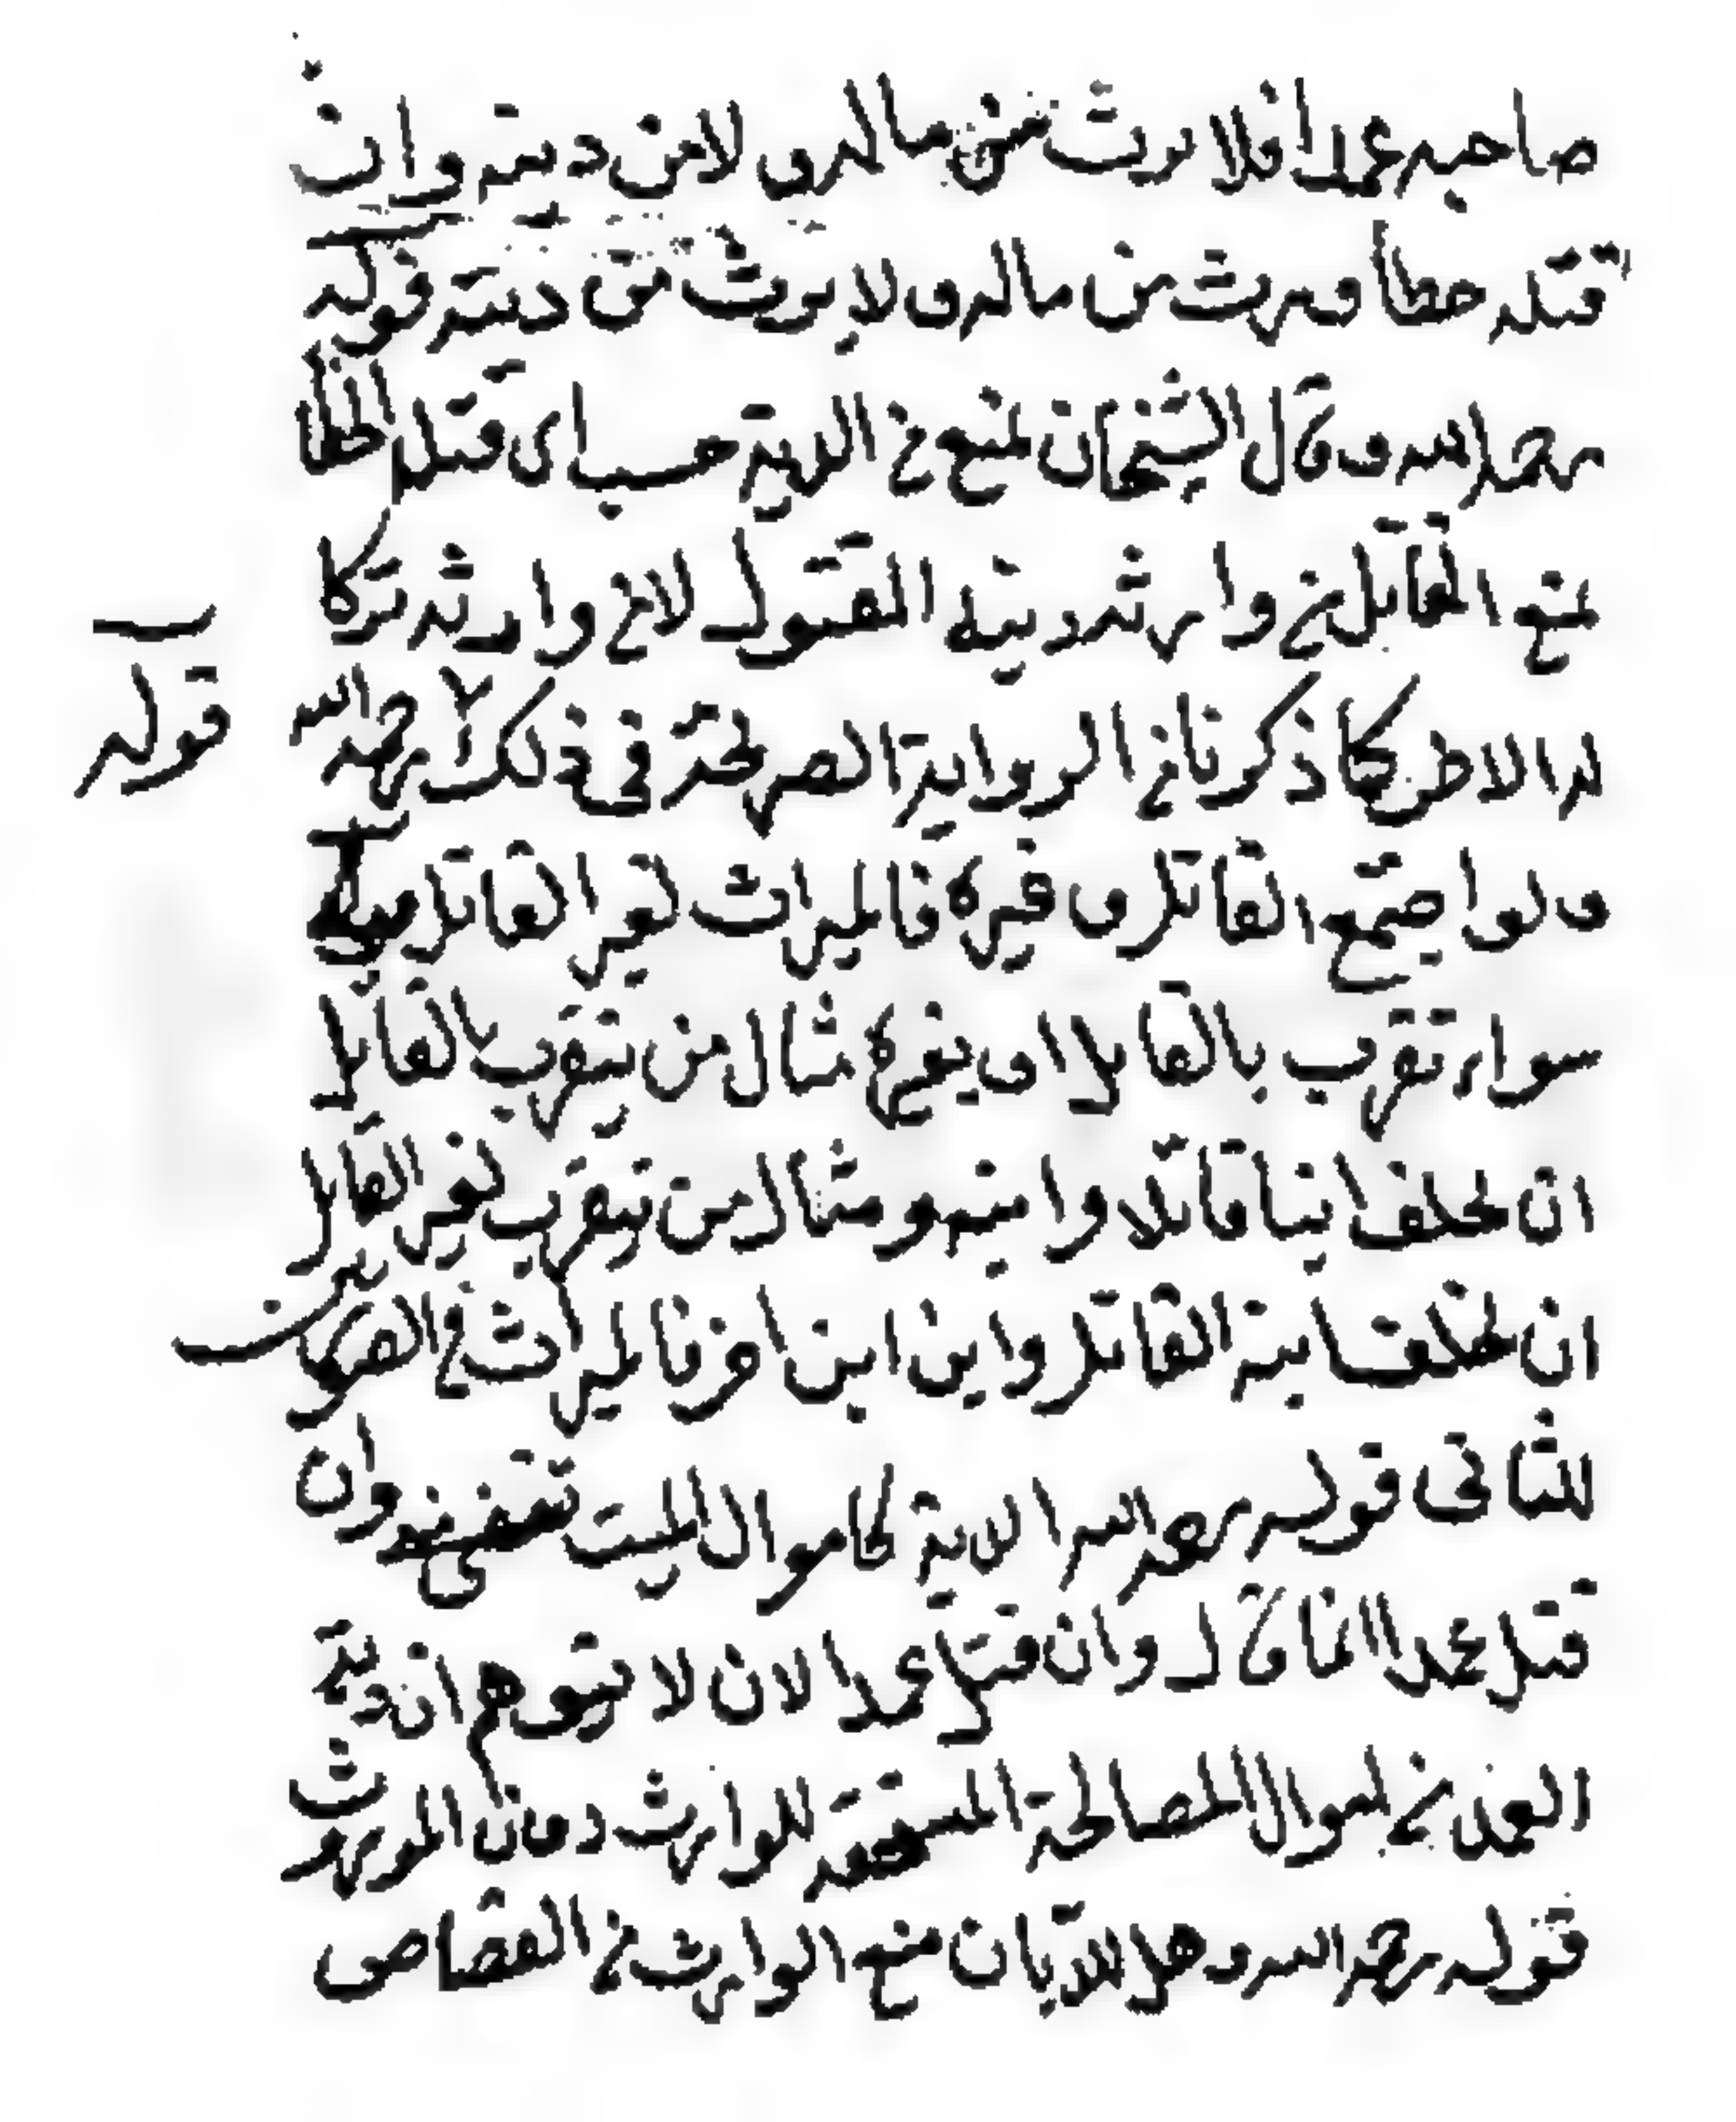 صاحبه عمدا فلا يرث من ماله و لا من ديته وان
قتله خطا ورث من ماله و لا يرث من ديته قوله
رحمه الله وقال الشيخان يمنع من الدية حسب اى قتل الخطا
يمنع القاتل من وارثه دية المقتول لا من وارثه تركا
ذكرنا من الرواية الصريحة في ذلك رحمه الله
قوله
ولو اجتمع القاتل و غيره فالميراث لغير القاتل
سواء تقرب بالقاتل او بغيره مثال من يتقرب بالقاتل
ان يخلف ابنا قاتلا وابنه و مثال من يتقرب بغير القاتل
ان يخلف ابنه القاتل وابن ابن اخر فالميراث في الصورتين
للثاني قوله رحمه الله الدية كاموال الميت تقضى منه وان
قتل عمدا انما قال وان قتل عمدا لان لا يتوهم ان دية
العمد من اموال المصالحة المستحقة للوارث دون الموروث
قوله رحمه الله وهل للديان منع الوارث من القصاص